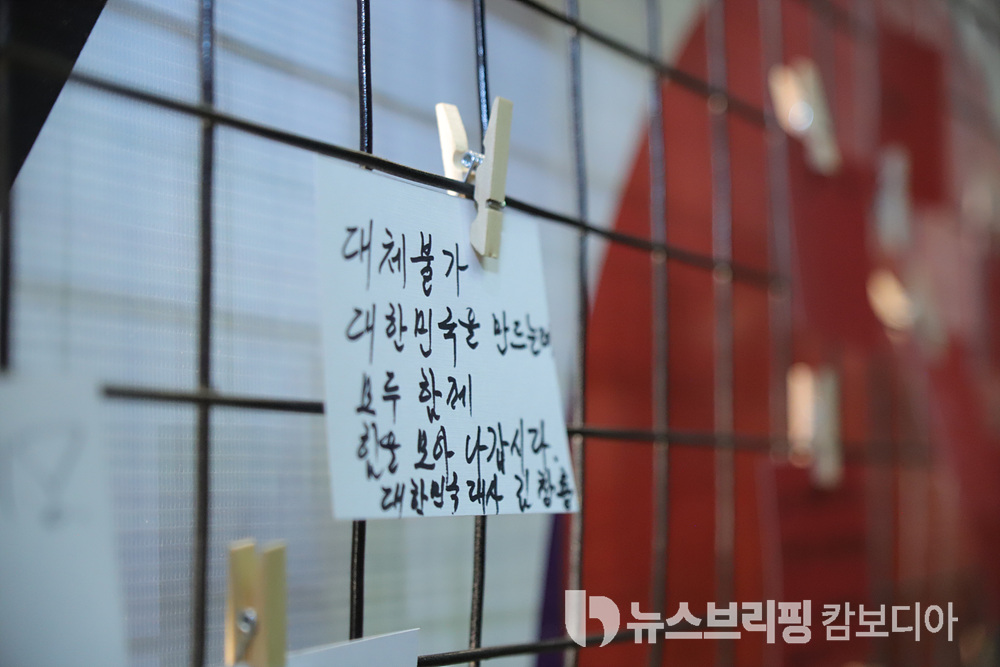 대체불가
대한민국을 만드는데
모두 함께
힘을 모아 나갑시다.
대한민국 대사 김창룡
뉴스브리핑 캄보디아